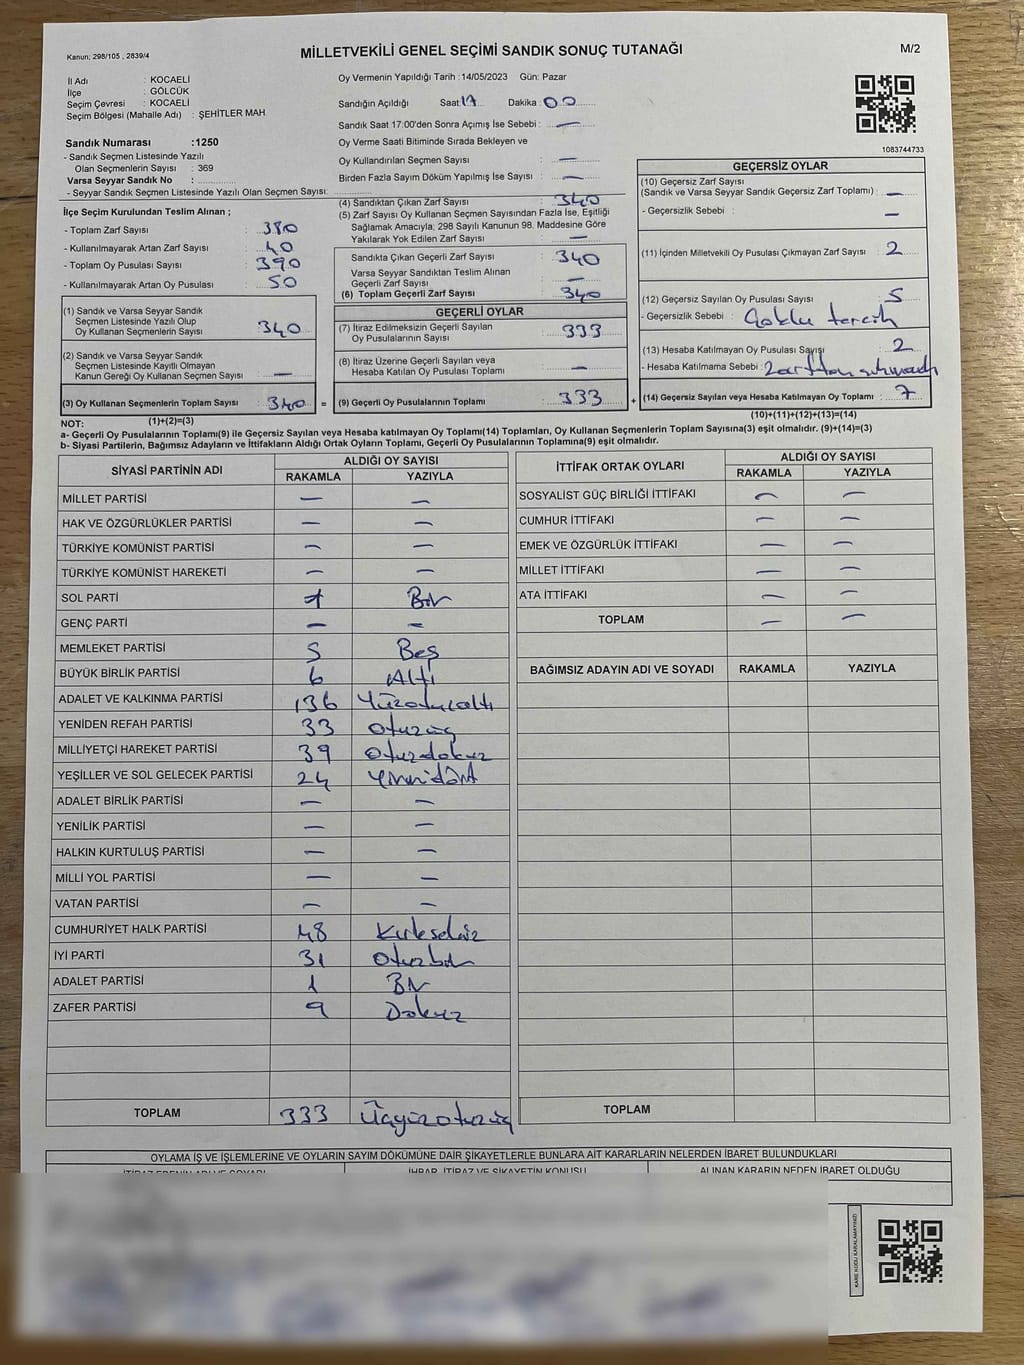 Kanun; 298/105 , 2839/4
MİLLETVEKİLİ GENEL SEÇİMİ SANDIK SONUÇ TUTANAĞI
M/2
İl Adı : KOCAELİ
İlçe : GÖLCÜK
Seçim Çevresi : KOCAELİ
Seçim Bölgesi (Mahalle Adı) : ŞEHİTLER MAH
Sandık Numarası :1250
- Sandık Seçmen Listesinde Yazılı
Olan Seçmenlerin Sayısı : 369
Varsa Seyyar Sandık No :
- Seyyar Sandık Seçmen Listesinde Yazılı Olan Seçmen Sayısı:
Oy Vermenin Yapıldığı Tarih :14/05/2023 Gün: Pazar
Sandığın Açıldığı Saat 17 Dakika : 00
Sandık Saat 17:00'den Sonra Açımış İse Sebebi : —
Oy Verme Saati Bitiminde Sırada Bekleyen ve
Oy Kullandırılan Seçmen Sayısı : —
Birden Fazla Sayım Döküm Yapılmış İse Sayısı : —
1083744733
İlçe Seçim Kurulundan Teslim Alınan ;
- Toplam Zarf Sayısı : 380
- Kullanılmayarak Artan Zarf Sayısı : 40
- Toplam Oy Pusulası Sayısı : 390
- Kullanılmayarak Artan Oy Pusulası : 50
(1) Sandık ve Varsa Seyyar Sandık
Seçmen Listesinde Yazılı Olup
Oy Kullanan Seçmenlerin Sayısı : 340
(2) Sandık ve Varsa Seyyar Sandık
Seçmen Listesinde Kayıtlı Olmayan
Kanun Gereği Oy Kullanan Seçmen Sayısı : —
(3) Oy Kullanan Seçmenlerin Toplam Sayısı : 340 =
(1)+(2)=(3)
(4) Sandıktan Çıkan Zarf Sayısı : 340
(5) Zarf Sayısı Oy Kullanan Seçmen Sayısından Fazla İse, Eşitliği
Sağlamak Amacıyla; 298 Sayılı Kanunun 98. Maddesine Göre
Yakılarak Yok Edilen Zarf Sayısı : —
Sandıkta Çıkan Geçerli Zarf Sayısı : 340
Varsa Seyyar Sandıktan Teslim Alınan
Geçerli Zarf Sayısı : —
(6) Toplam Geçerli Zarf Sayısı : 340
GEÇERLİ OYLAR
(7) İtiraz Edilmeksizin Geçerli Sayılan
Oy Pusulalarının Sayısı : 333
(8) İtiraz Üzerine Geçerli Sayılan veya
Hesaba Katılan Oy Pusulası Toplamı : —
(9) Geçerli Oy Pusulalarının Toplamı : 333 +
GEÇERSİZ OYLAR
(10) Geçersiz Zarf Sayısı
(Sandık ve Varsa Seyyar Sandık Geçersiz Zarf Toplamı) : —
- Geçersizlik Sebebi : —
(11) İçinden Milletvekili Oy Pusulası Çıkmayan Zarf Sayısı : 2
(12) Geçersiz Sayılan Oy Pusulası Sayısı : 5
- Geçersizlik Sebebi : Çoklu tercih
(13) Hesaba Katılmayan Oy Pusulası Sayısı : 2
- Hesaba Katılmama Sebebi : Zarftan çıkmadı
(14) Geçersiz Sayılan veya Hesaba Katılmayan Oy Toplamı : 7
(10)+(11)+(12)+(13)=(14)
NOT:
a- Geçerli Oy Pusulalarının Toplamı(9) ile Geçersiz Sayılan veya Hesaba Katılmayan Oy Toplamı(14) Toplamları, Oy Kullanan Seçmenlerin Toplam Sayısına(3) eşit olmalıdır. (9)+(14)=(3)
b- Siyasi Partilerin, Bağımsız Adayların ve İttifakların Aldığı Ortak Oyların Toplamı, Geçerli Oy Pusulalarının Toplamına(9) eşit olmalıdır.
SİYASİ PARTİNİN ADI ALDIĞI OY SAYISI
RAKAMLA YAZIYLA
MİLLET PARTİSİ — —
HAK VE ÖZGÜRLÜKLER PARTİSİ — —
TÜRKİYE KOMÜNİST PARTİSİ — —
TÜRKİYE KOMÜNİST HAREKETİ — —
SOL PARTİ 1 Bir
GENÇ PARTİ — —
MEMLEKET PARTİSİ 5 Beş
BÜYÜK BİRLİK PARTİSİ 6 Altı
ADALET VE KALKINMA PARTİSİ 136 Yüzotuzaltı
YENİDEN REFAH PARTİSİ 33 Otuzüç
MİLLİYETÇİ HAREKET PARTİSİ 39 Otuzdokuz
YEŞİLLER VE SOL GELECEK PARTİSİ 24 Yirmidört
ADALET BİRLİK PARTİSİ — —
YENİLİK PARTİSİ — —
HALKIN KURTULUŞ PARTİSİ — —
MİLLİ YOL PARTİSİ — —
VATAN PARTİSİ — —
CUMHURİYET HALK PARTİSİ 48 Kırksekiz
İYİ PARTİ 31 Otuzbir
ADALET PARTİSİ 1 Bir
ZAFER PARTİSİ 9 Dokuz
TOPLAM 333 Üçyüzotuzüç
İTTİFAK ORTAK OYLARI ALDIĞI OY SAYISI
RAKAMLA YAZIYLA
SOSYALİST GÜÇ BİRLİĞİ İTTİFAKI — —
CUMHUR İTTİFAKI — —
EMEK VE ÖZGÜRLÜK İTTİFAKI — —
MİLLET İTTİFAKI — —
ATA İTTİFAKI — —
TOPLAM — —
BAĞIMSIZ ADAYIN ADI VE SOYADI RAKAMLA YAZIYLA
TOPLAM
OYLAMA İŞ VE İŞLEMLERİNE VE OYLARIN SAYIM DÖKÜMÜNE DAİR ŞİKAYETLERLE BUNLARA AİT KARARLARIN NELERDEN İBARET BULUNDUKLARI
İTİRAZ EDENİN ADI VE SOYADI İHBAR, İTİRAZ VE ŞİKAYETİN KONUSU ALINAN KARARIN NEDEN İBARET OLDUĞU
KARE KODU KARALAMAYINIZ!